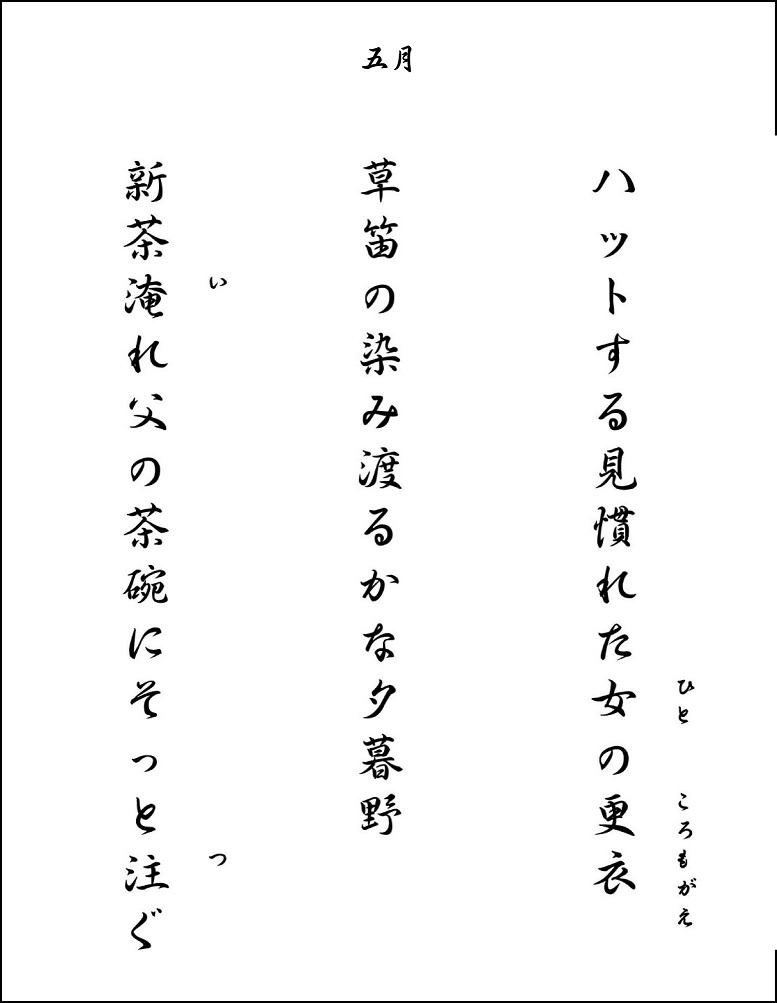 五月
ハットする見慣れた女の更衣
ひと ころもがえ
草笛の染み渡るかな夕暮野
新茶淹れ父の茶碗にそっと注ぐ
い つ